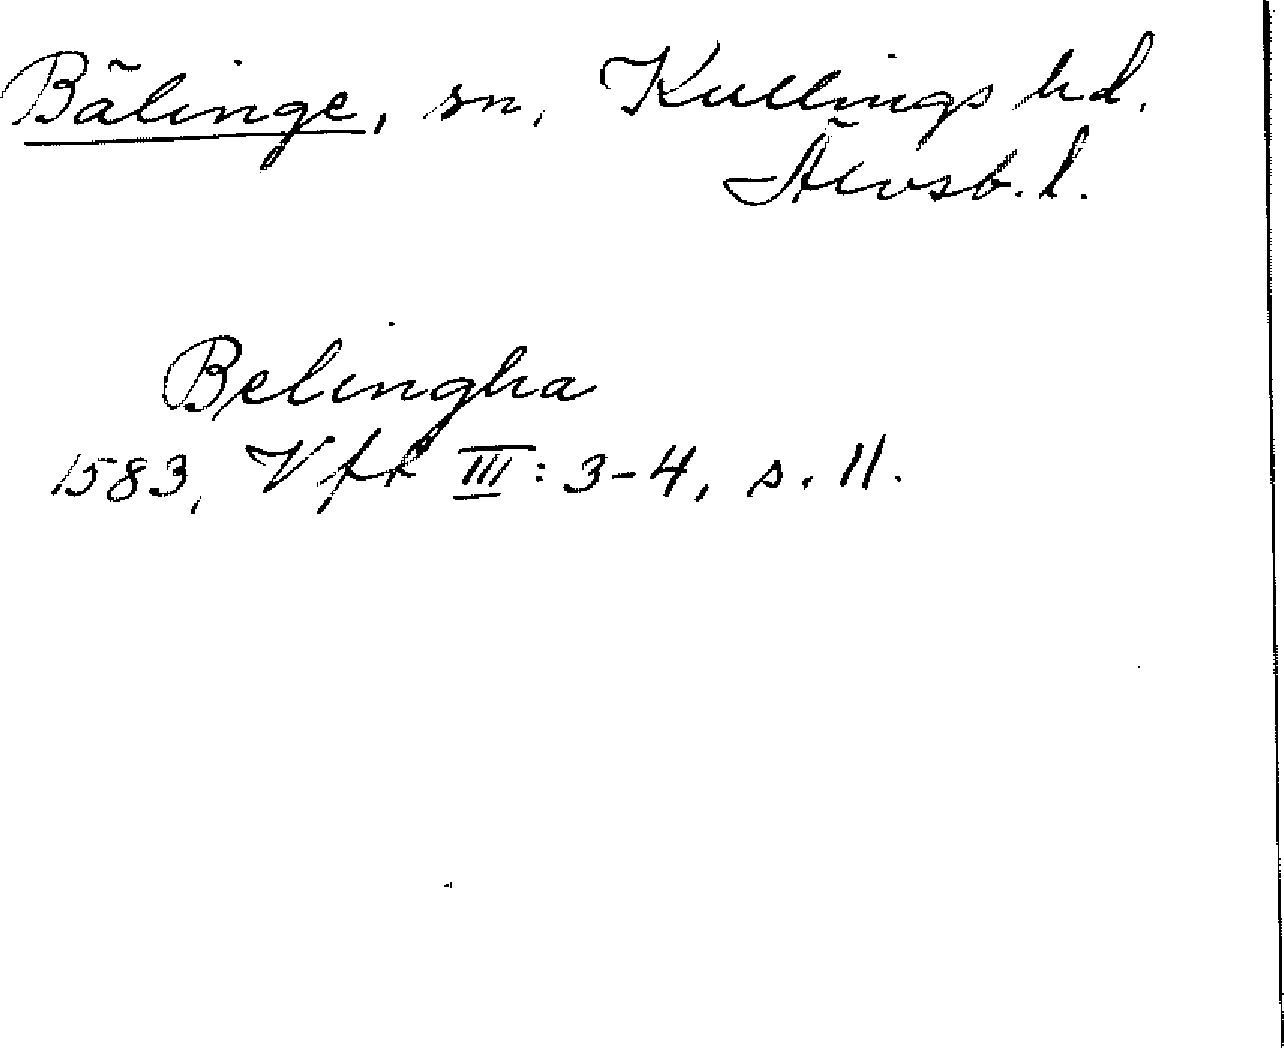 Bälinge, sn, Kullings hd.
Älvsb. l.
Belingha
1583, Vft III: 3-4, s. 11.